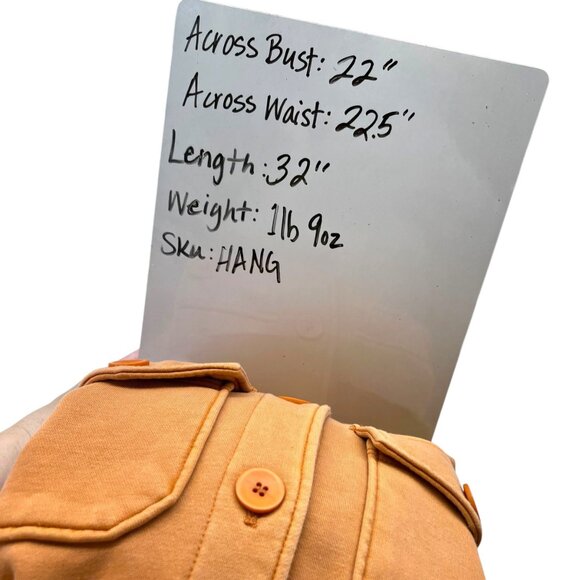 Across Bust: 22"
Across Waist: 22.5"
Length: 32"
Weight: 1lb 9oz
Sku: HANG